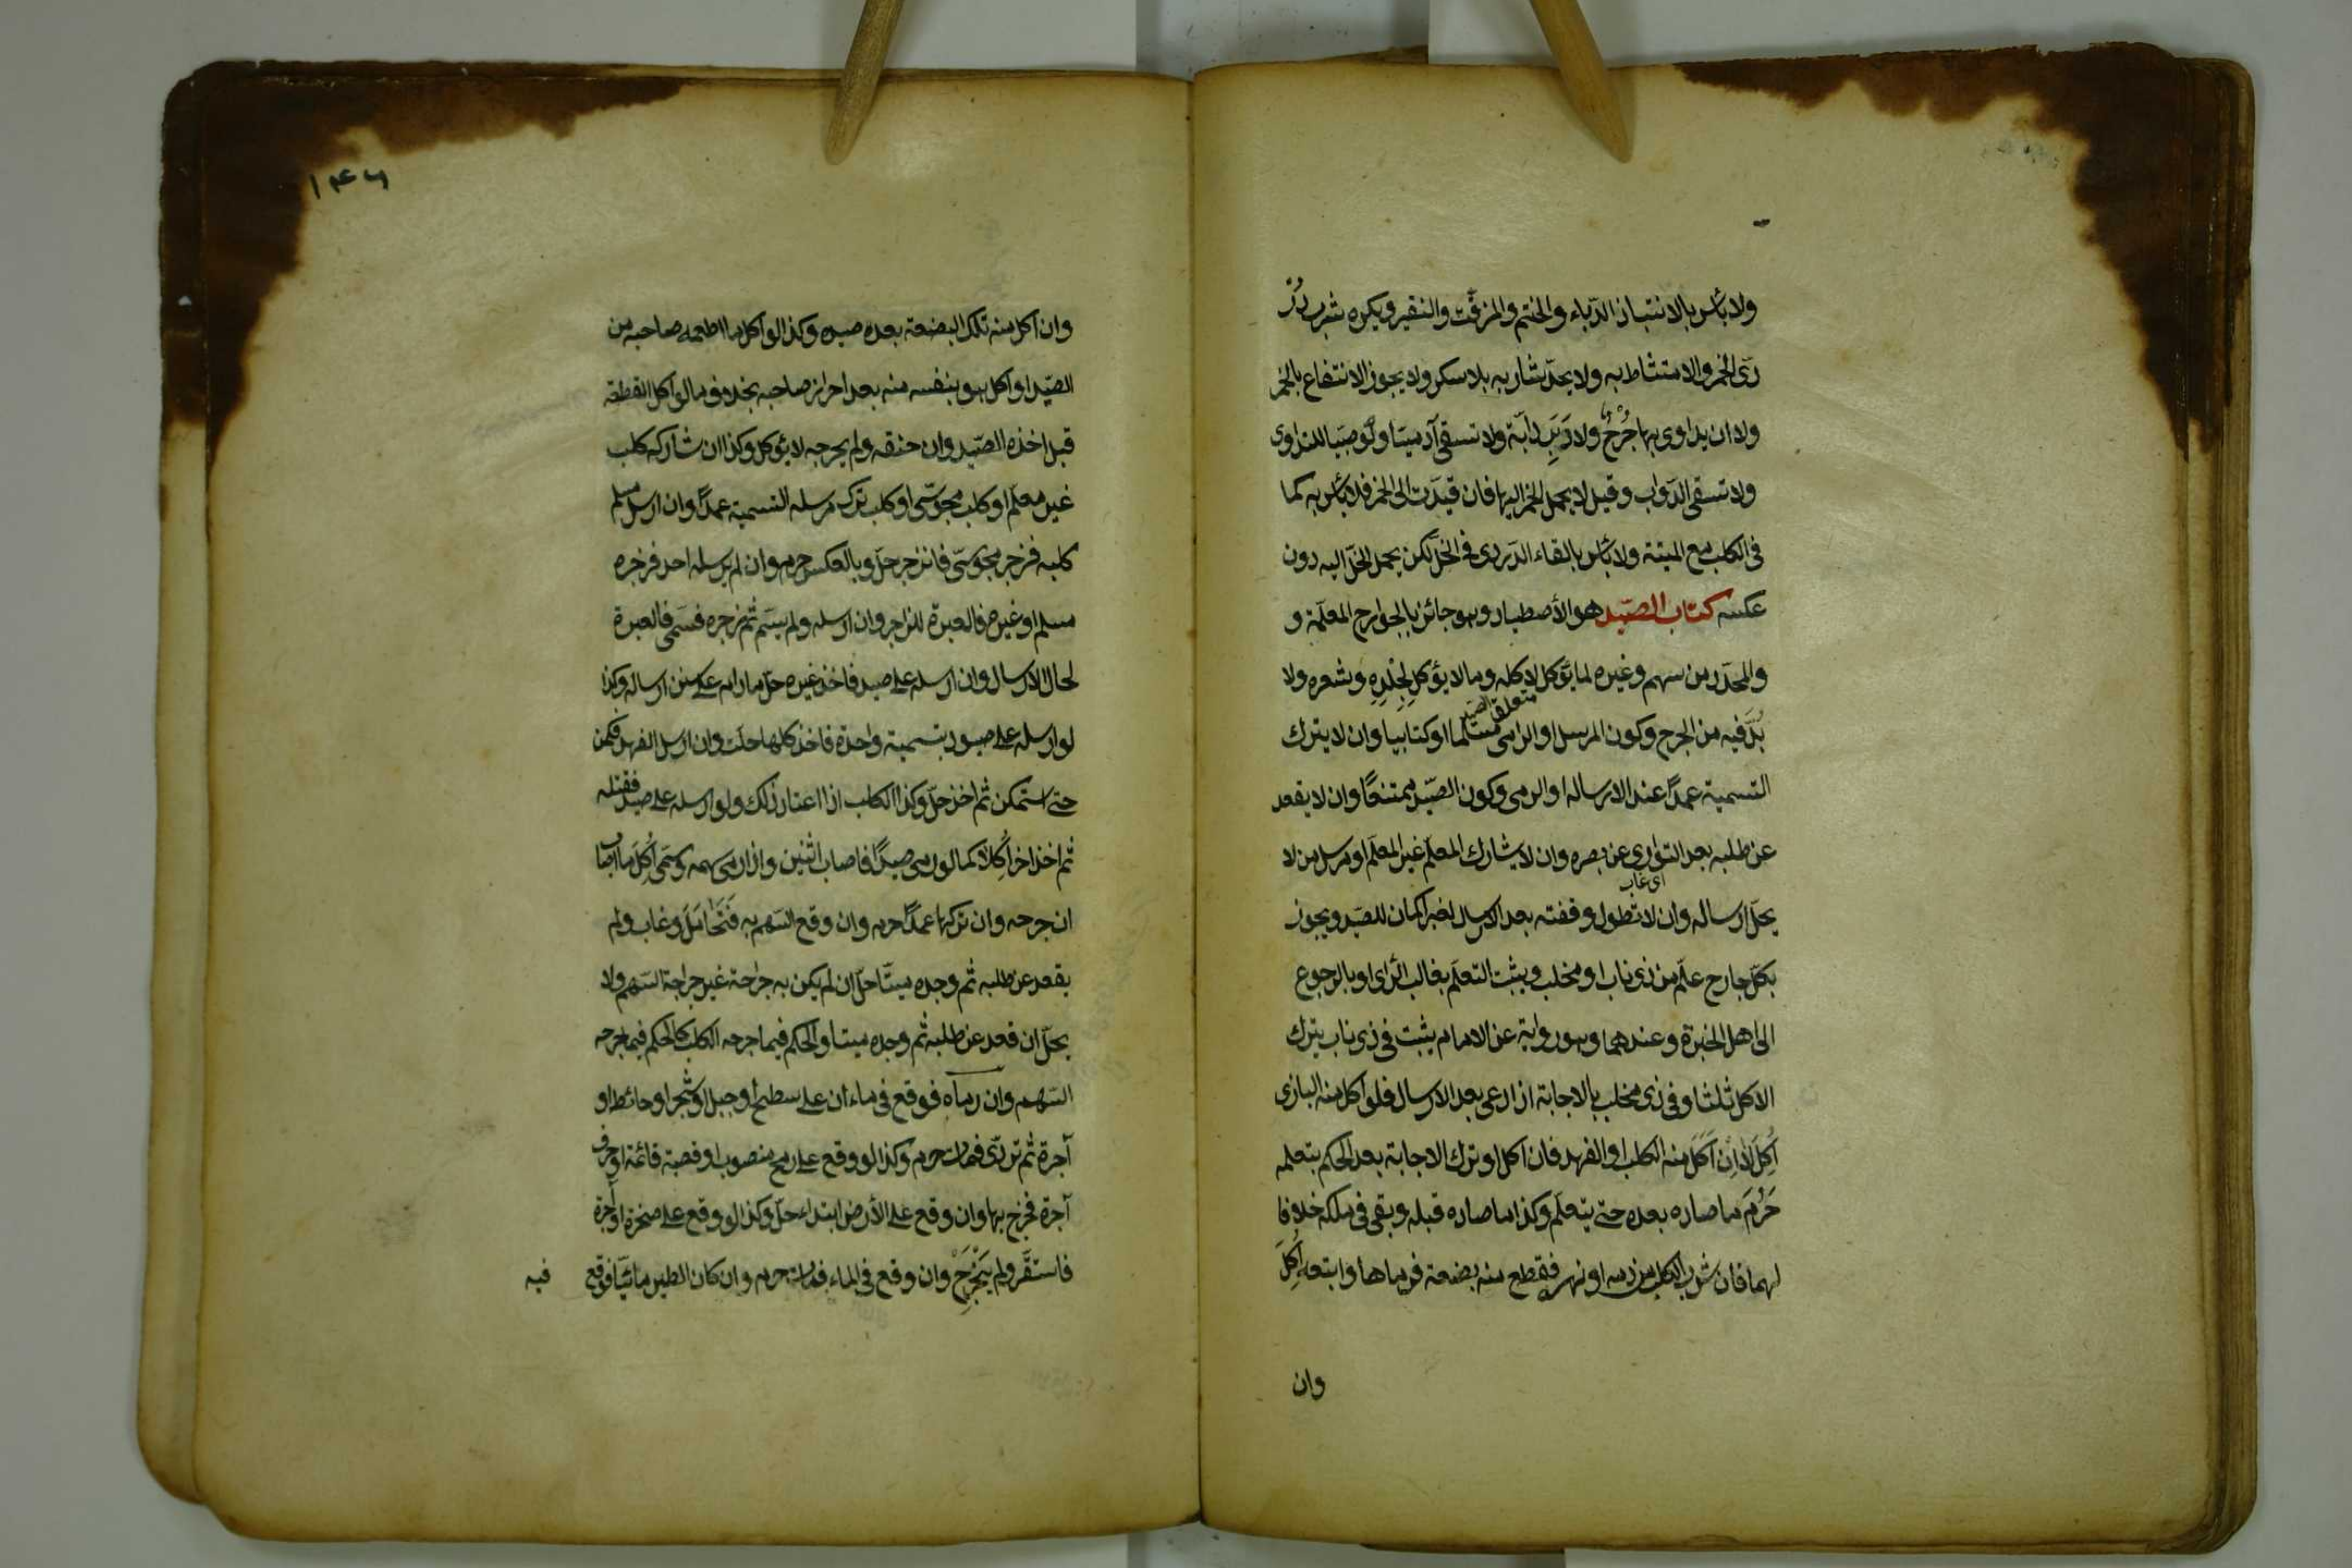 ولا بأس بالانتباذ الدّباء والختم والمزفّت والنقير ويكره شرب دُرْ
ردّى الخمر والامتشاط به ولا يحدّ شاربه بلا سكر ولا يجوز الانتفاع بالخمر
ولا ان يداوى بها جُرْحٌ ولا دَبَرِ دابّة ولا تسقى آدميتا ولو صبيا للتداوى
ولا تسقى الدّواب وقيل لا يحمل الخمر اليها فان قيدت الى الخمر فلا بأس به كما
فى الكلب مع الميتة ولا بأس بالقاء الدّردى فى الخلّ لكن يحمل الخلّ اليه دون
عكسه كتاب الصّيد هو الأصطياد وهو جائز بالجوارح المعلّمة و
والمحدّد من سهم وغيره لما يؤكل لاكله وما لا يؤكل لِجِلْدِهِ وشعره ولا
بُدّ فيه من الجرح وكون المرسل او الرامى مسلما او كتابيا وان لا يترك
متعلق الصيد
التسمية عمدًا عند الارساله او الرمى وكون الصّيد ممتنعًا وان لا يقعد
عن طلبه بعد التوارى عن بصره وان لا يشارك المعلّم غير المعلّم او مرسل من لا
اى غاب
يحلّ ارساله وان لا تطول وقفته بعد الارسال لغير اكمان للصّيد ويجوز
بكلّ جارح علّم من ذى ناب او مخلب ويثبت التعلّم بغالب الرّاى او بالرجوع
الى اهل الخبرة وعندهما وهو رواية عن الامام يثبت فى ذى ناب بترك
الاكل ثلثا وفى ذى مخلب بالاجابة اذا دعى بعد الارسال فلو اكل منه البازى
اُكِلَ لا اِنْ اَكَلَ منه الكلب او الفهد فان اكل او ترك الاجابة بعد الحكم بتعلمه
حَرُمَ ما صاده بعده حتى يتعلّم وكذا ما صاده قبله وبقى فى ملكه خلافا
لهما فان شرب الكلب من دمه او نهر فقطع منه بضعة فرماها واتبعه اُكِلَ
وان
١٤٦
وان اكل منه تلك البضعة بعده صيده وكذا لو اكل ما اطعمه صاحبه من
الصّيد او اكل هو بنفسه منه بعد احراز صاحبه بخلاف ما لو اكل القطعة
قبل اخذه الصّيد وان خنقه ولم يجرحه لا يؤكل وكذا ان شاركه كلب
غير معلّم او كلب مجوسّى او كلب ترك مرسله التسمية عمدًا وان ارسل مسلم
كلبه فزجر مجوسّى فانزجر حلّ وبالعكس حرم وان لم يرسله احد فزجره
مسلم او غيره فالعبرة للزاجر وان ارسله ولم يسمّ ثم زجره فسمّى فالعبرة
لحال الارسال وان ارسله على صيد فاخذ غيره حلّ ما دام على سنن ارساله وكذا
لو ارسله على صيود بتسمية واحدة فاخذ كلها حلّت وان ارسل الفهد فكمن
حتى استمكن ثم اخذ حلّ وكذا الكلب اذا اعتاد ذلك ولو ارسله على صيد فقتله
ثم اخذ اخر اُكِلا كما لو رمى صيدًا فاصاب اثنين واذا رمى سهمه وسمّى اُكِلَ ما اصاب
ان جرحه وان تركها عمدًا حرم وان وقع السّهم به فَتَحَامَلَ وغاب ولم
يقعد عن طلبه ثم وجده ميتًا حلّ ان لم يكن به جراحة غير جراحة السّهم ولا
يحلّ ان قعد عن طلبه ثم وجده ميتا والحكم فيما جرحه الكلب كالحكم فيما جرحه
السّهم وان رماه فوقع فى ماء ان على سطح او جبل او شجر او حائط او
آجرة ثم تردّى فمات حرم وكذا لو وقع على رمح منصوب او قصبة قائمة او حرف
آجرة فجرح بها وان وقع على الأرض ابتداء حلّ وكذا لو وقع على صخرة او آجرة
فاستقرّ ولم يَنْجَرِحْ وان وقع فى الماء فمات حرم وان كان الطير مائيّا فوقع
فيه